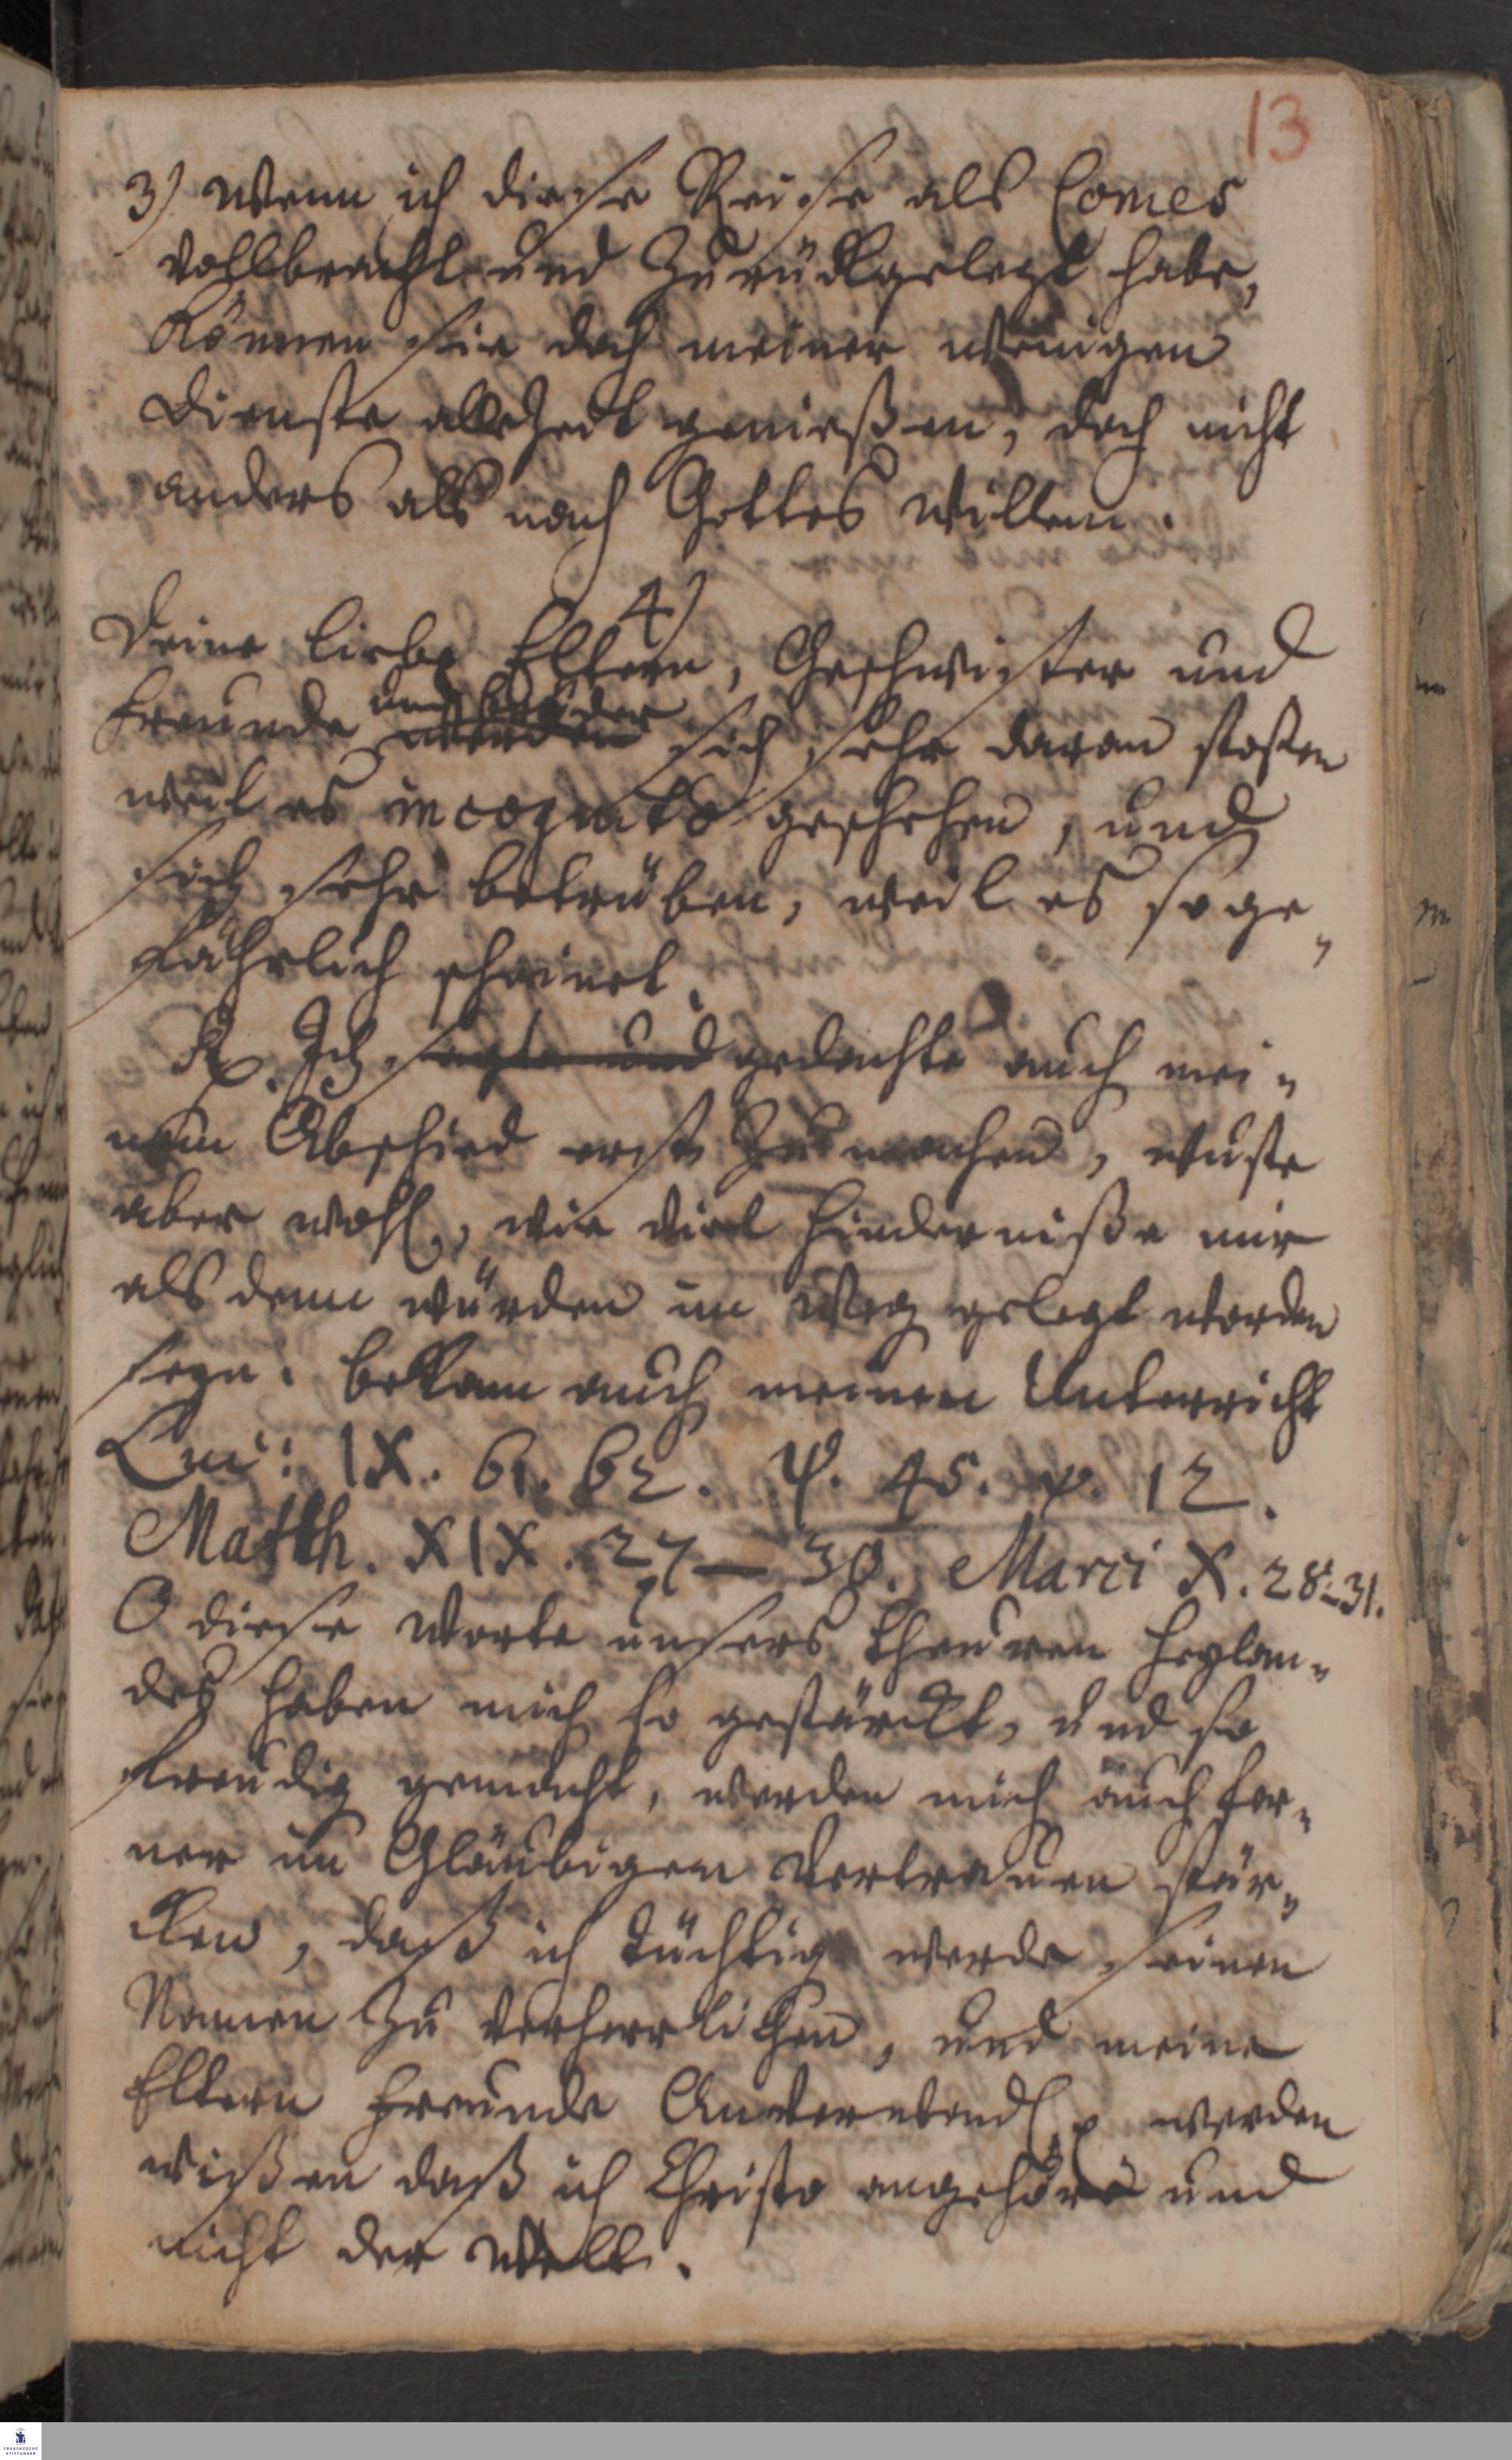 13
3) Wenn ich diese Reise als Comes
vollbracht und zurückgelegt habe,
können sie doch meiner wenigen
Dienste allezeit genießen, doch nicht
anders als nach Gottes Willen.
4)
Deine liebe Eltern, Geschwister und
Freunde werden sich sehr daran stoßen
weil es incognito geschehen, und
sich sehr betrüben, weil es so ge„
fährlich scheinet.
Rx. Ich sagte und gedachte auch mei„
nen Abschied erst zu machen, wuste
aber wohl, wie viel Hinderniße mir
als denn würden im Weg gelegt worden
seyn. bekam auch meinen Unterricht
Luc: IX. 61. 62. ψ. 45. v. 12.
Matth. XIX. 27 – 30. Marci X. 28–31.
O diese Worte unsers theuren Heylan„
des haben mich so gestärckt, und so
freudig gemacht, werden mich auch fer„
ner im Gläubigen Vertrauen stär„
cken, daß ich tüchtig werde, seinen
Namen zu verherrlichen, und meine
Eltern Freunde Anverwandt werden
wißen daß ich Christo angehöre und
nicht der Welt.
FRANCKESCHE
STIFTUNGEN